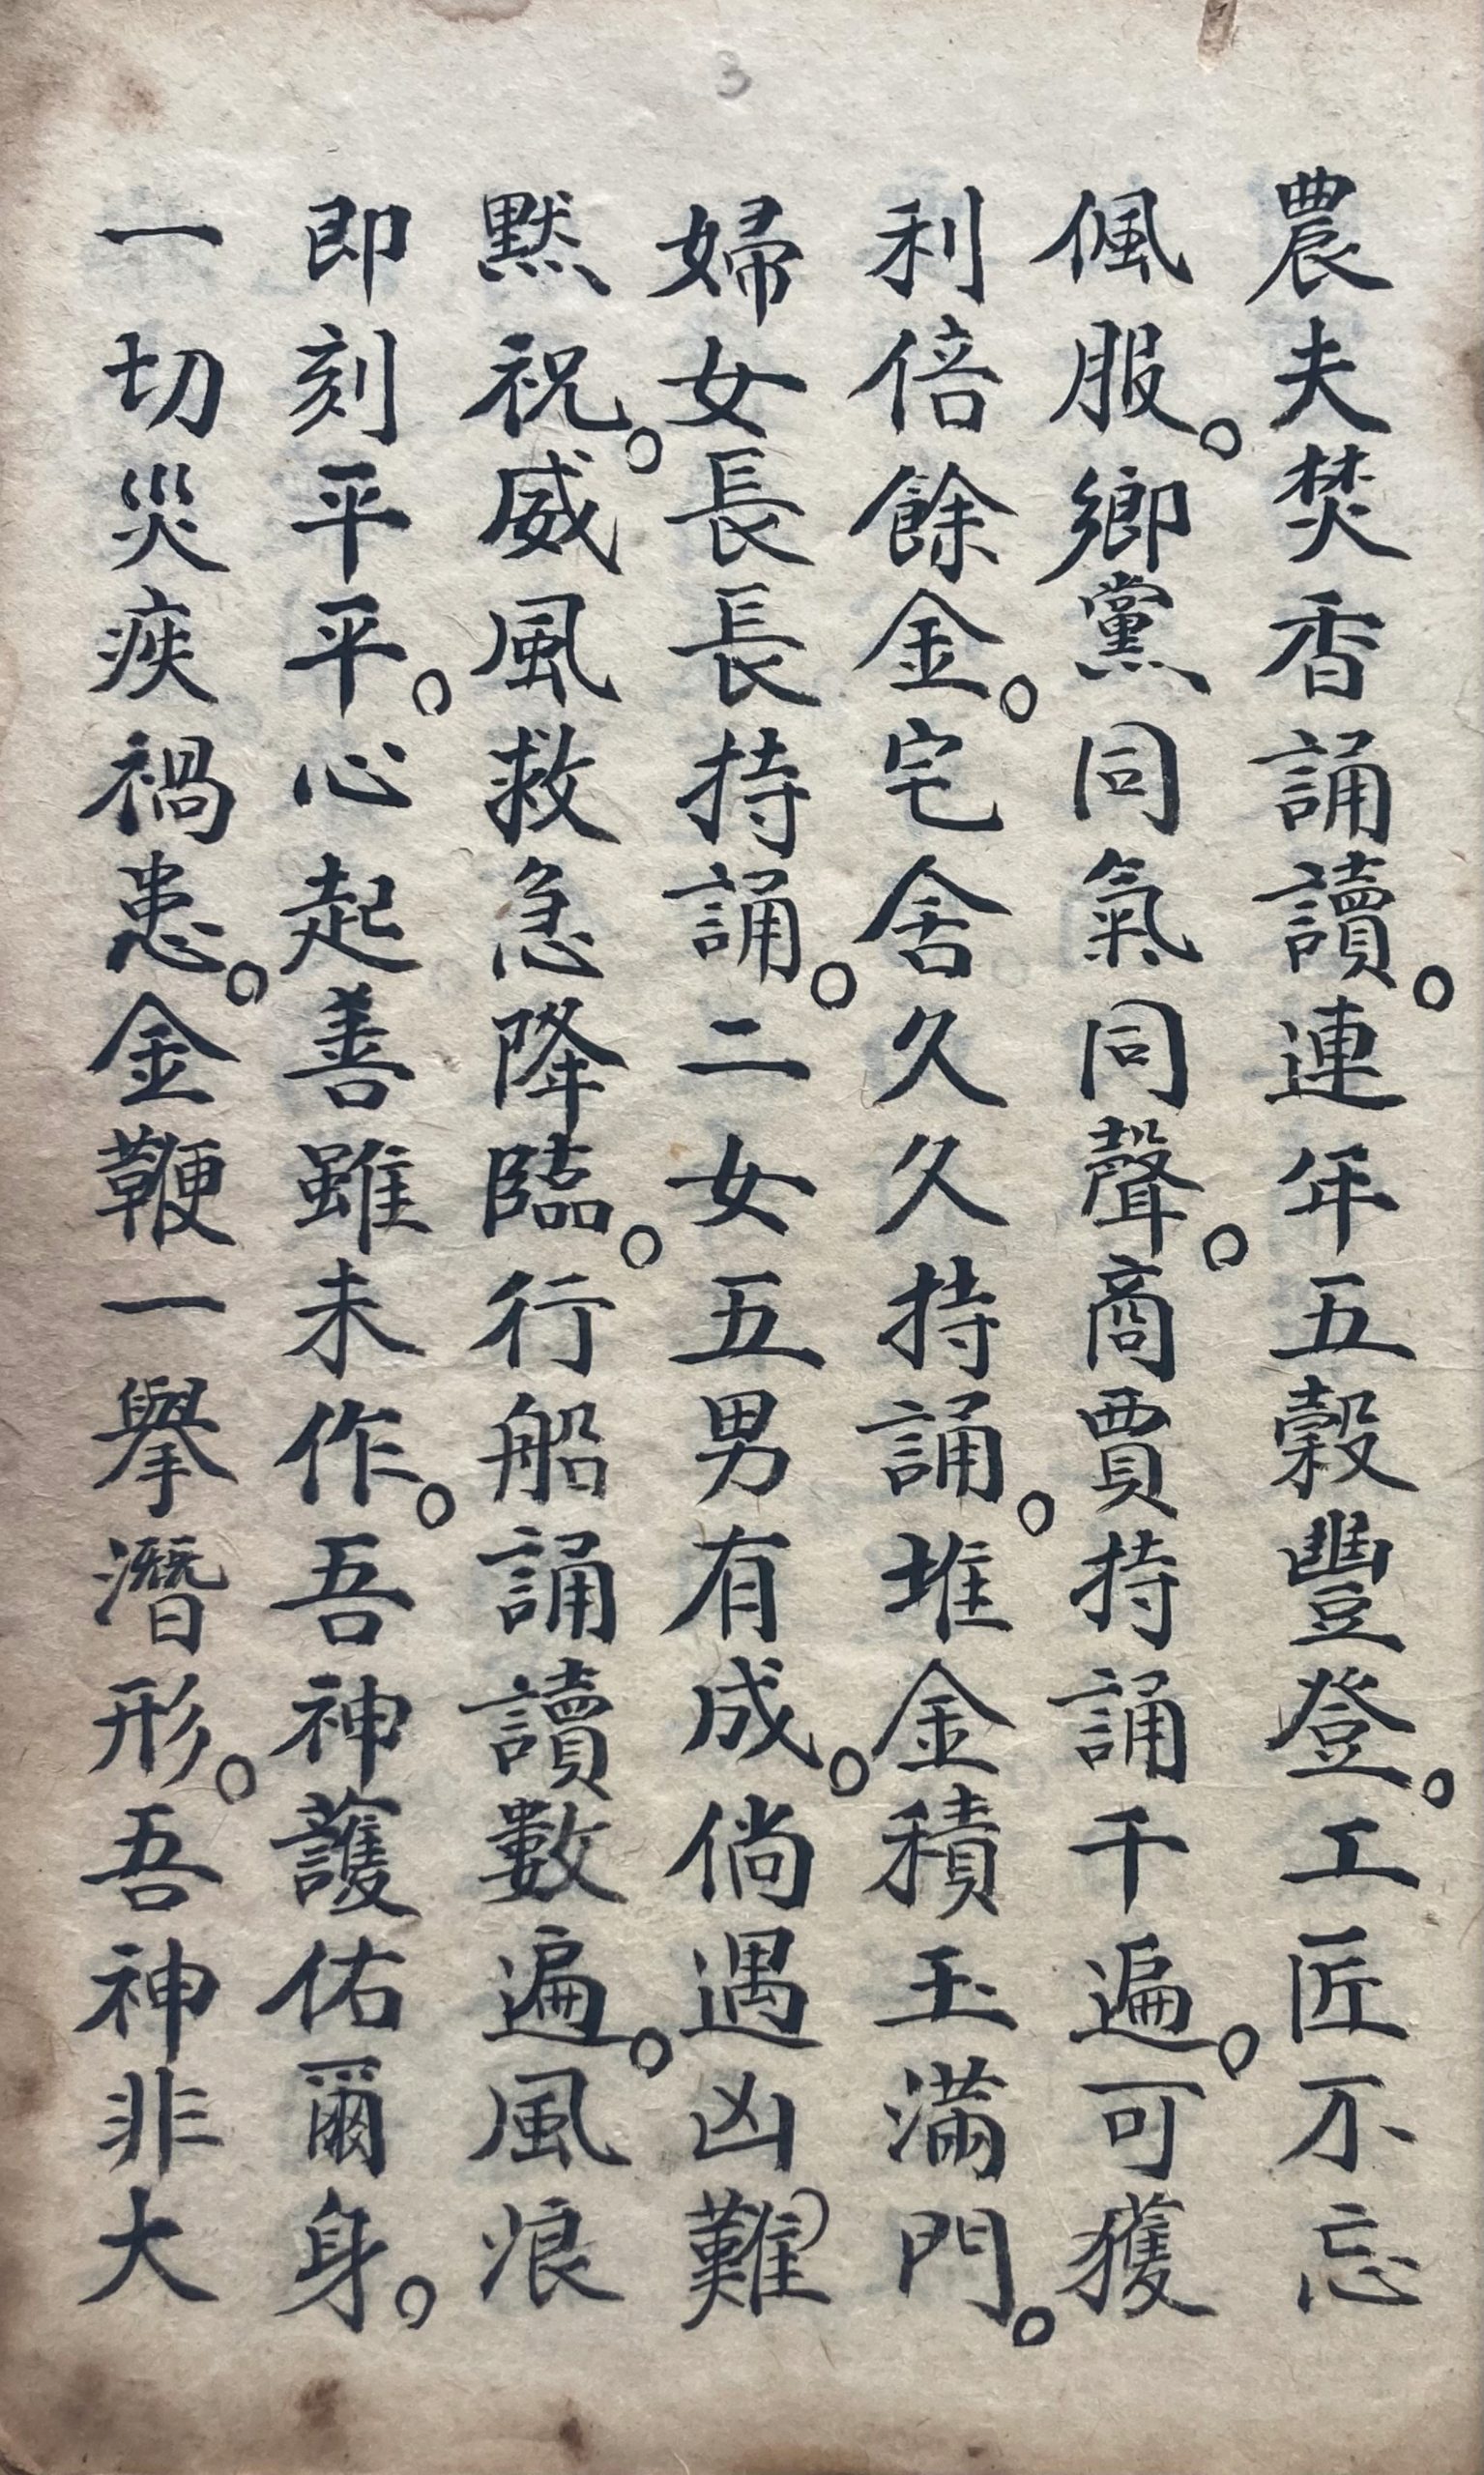 3
農夫焚香誦讀。連年五穀豐登。工匠不忘
佩服。鄉黨同氣同聲。商賈持誦千遍。可獲
利倍餘金。宅舍久久持誦。堆金積玉滿門。
婦女長長持誦。二女五男有成。倘遇凶難
默祝。威風救急降臨。行船誦讀數遍。風浪
即刻平平。心起善雖未作。吾神護佑爾身。
一切災疾禍患。金鞭一舉潛形。吾神非大